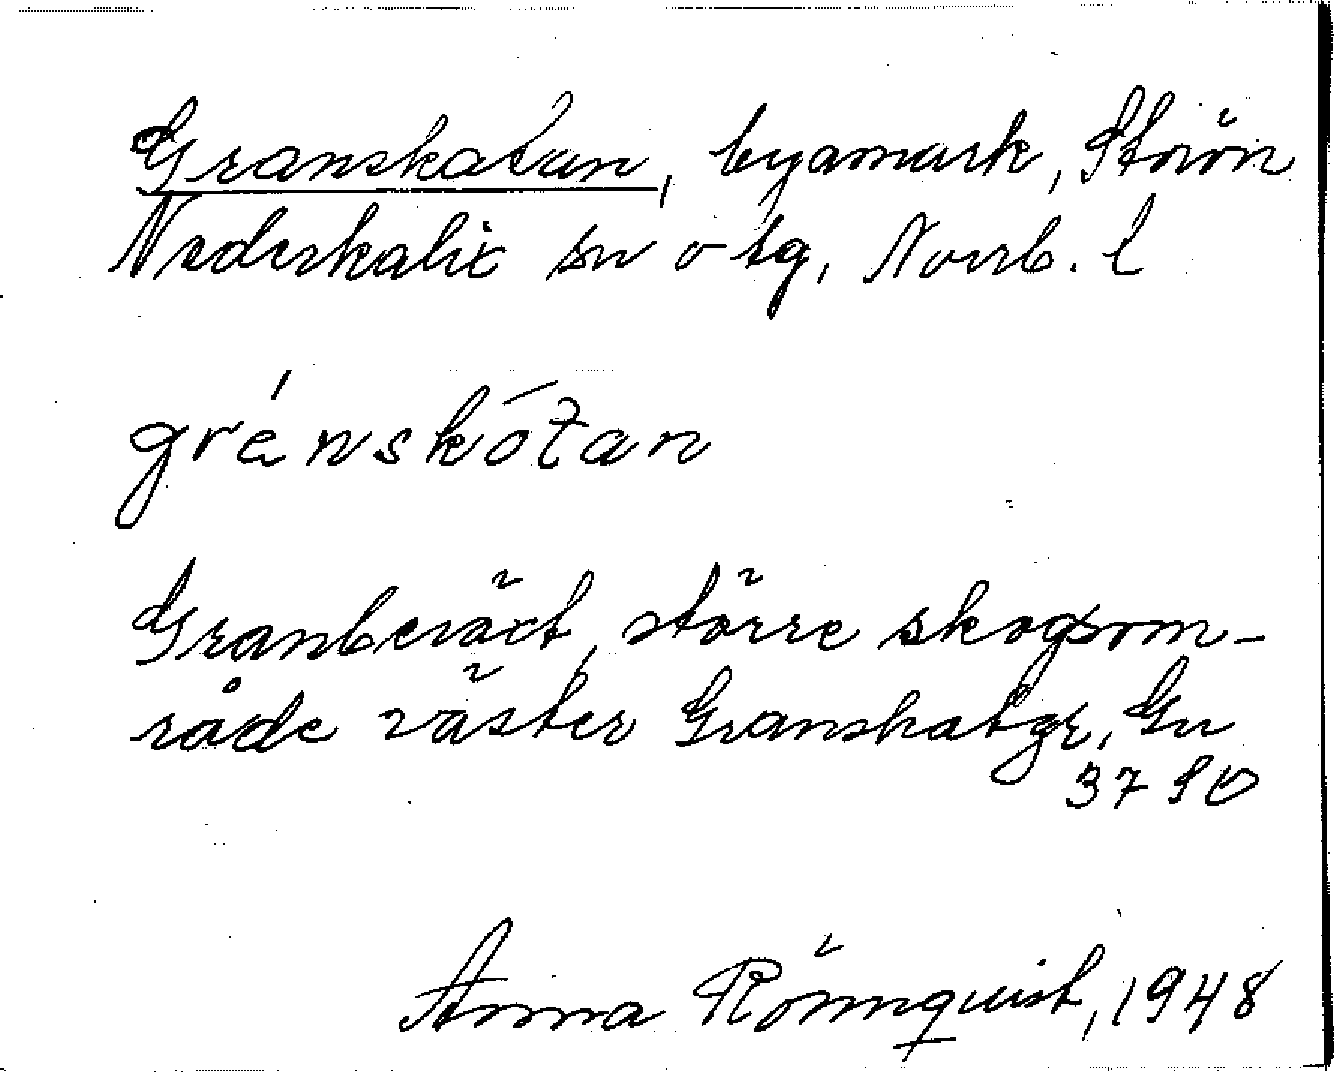 Granskatan, byamark, Storön
Nederkalix sn o tg, Norrb. l
gránskótan
Granbeväxt, större skogsom-
råde väster Granskatgr, Gu
37 SO
Anna Rönnquist, 1948